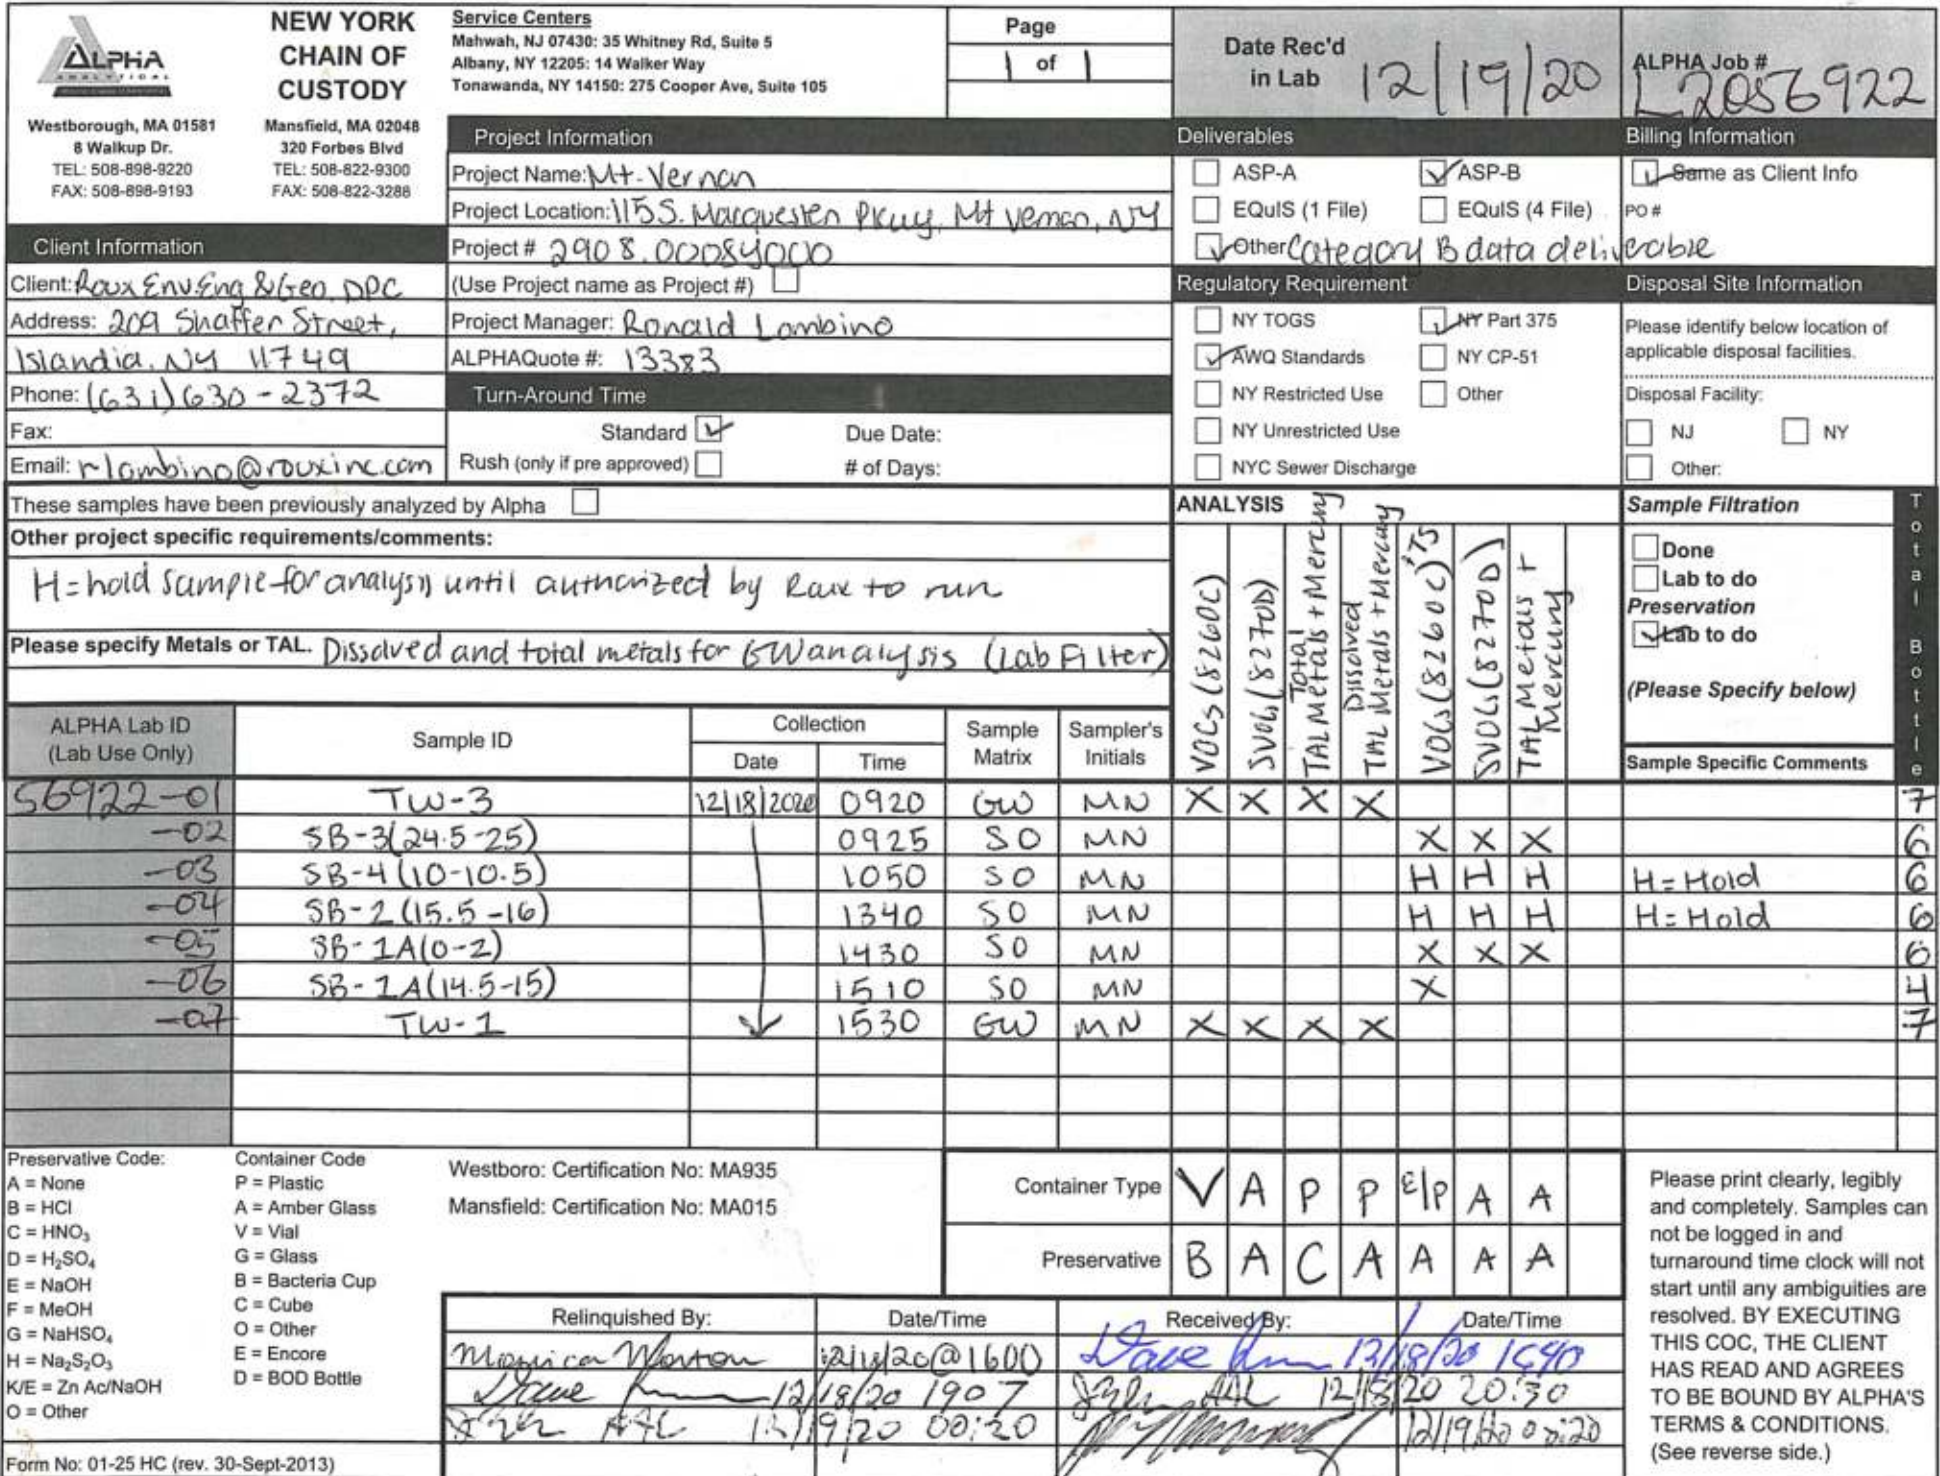 ALPHA
ANALYTICAL
Westborough, MA 01581
8 Walkup Dr.
TEL: 508-898-9220
FAX: 508-898-9193
NEW YORK
CHAIN OF
CUSTODY
Mansfield, MA 02048
320 Forbes Blvd
TEL: 508-822-9300
FAX: 508-822-3288
Service Centers
Mahwah, NJ 07430: 35 Whitney Rd, Suite 5
Albany, NY 12205: 14 Walker Way
Tonawanda, NY 14150: 275 Cooper Ave, Suite 105
Page
1 of 1
Date Rec'd
in Lab 12/19/20
ALPHA Job #
L2056922
Client Information
Client: Roux Env. Eng & Geo, DPC
Address: 209 Shaffer Street,
Islandia, NY 11749
Phone: (631) 630-2372
Fax:
Email: rlombino@rouxinc.com
Project Information
Project Name: Mt. Vernon
Project Location: 115 S. Macquesten Pkwy, Mt Vernon, NY
Project # 2908.0008Y000
(Use Project name as Project #)
Project Manager: Ronald Lombino
ALPHAQuote #: 13383
Turn-Around Time
Standard ✓ Due Date:
Rush (only if pre approved) # of Days:
Deliverables
ASP-A ✓ ASP-B
EQuIS (1 File) EQuIS (4 File)
✓ Other Category B data deliverable
Regulatory Requirement
NY TOGS ✓ NY Part 375
✓ AWQ Standards NY CP-51
NY Restricted Use Other
NY Unrestricted Use
NYC Sewer Discharge
Billing Information
✓ Same as Client Info
PO #
Disposal Site Information
Please identify below location of
applicable disposal facilities.
Disposal Facility:
NJ NY
Other:
These samples have been previously analyzed by Alpha
Other project specific requirements/comments:
H=hold sample for analysis until authorized by Roux to run
Please specify Metals or TAL. Dissolved and total metals for GW analysis (Lab Filter)
ANALYSIS
VOCs (8260C)
SVOCs (8270D)
Total TAL Metals + Mercury
Dissolved TAL Metals + Mercury
VOCs (8260C) TS
SVOCs (8270D)
TAL Metals + Mercury
Sample Filtration
Done
Lab to do
Preservation
✓ Lab to do
(Please Specify below)
Sample Specific Comments
Total Bottle
ALPHA Lab ID
(Lab Use Only)
Sample ID
Collection
Date Time
Sample
Matrix
Sampler's
Initials
56922-01 TW-3 12/18/2020 0920 GW MN X X X X 7
-02 SB-3(24.5-25) 0925 SO MN X X X 6
-03 SB-4(10-10.5) 1050 SO MN H H H H=Hold 6
-04 SB-2(15.5-16) 1340 SO MN H H H H=Hold 6
-05 SB-1A(0-2) 1430 SO MN X X X 6
-06 SB-1A(14.5-15) 1510 SO MN X 4
-07 TW-1 1530 GW MN X X X X 7
Preservative Code:
A = None
B = HCl
C = HNO3
D = H2SO4
E = NaOH
F = MeOH
G = NaHSO4
H = Na2S2O3
K/E = Zn Ac/NaOH
O = Other
Container Code
P = Plastic
A = Amber Glass
V = Vial
G = Glass
B = Bacteria Cup
C = Cube
O = Other
E = Encore
D = BOD Bottle
Westboro: Certification No: MA935
Mansfield: Certification No: MA015
Container Type V A P P E/P A A
Preservative B A C A A A A
Relinquished By: Date/Time Received By: Date/Time
12/18/20@1600 Dave 12/18/20
Dave 12/18/20 1907 AAL 12/18/20 20:30
AAL 12/19/20 00:20 12/19/20 00:20
Please print clearly, legibly
and completely. Samples can
not be logged in and
turnaround time clock will not
start until any ambiguities are
resolved. BY EXECUTING
THIS COC, THE CLIENT
HAS READ AND AGREES
TO BE BOUND BY ALPHA'S
TERMS & CONDITIONS.
(See reverse side.)
Form No: 01-25 HC (rev. 30-Sept-2013)